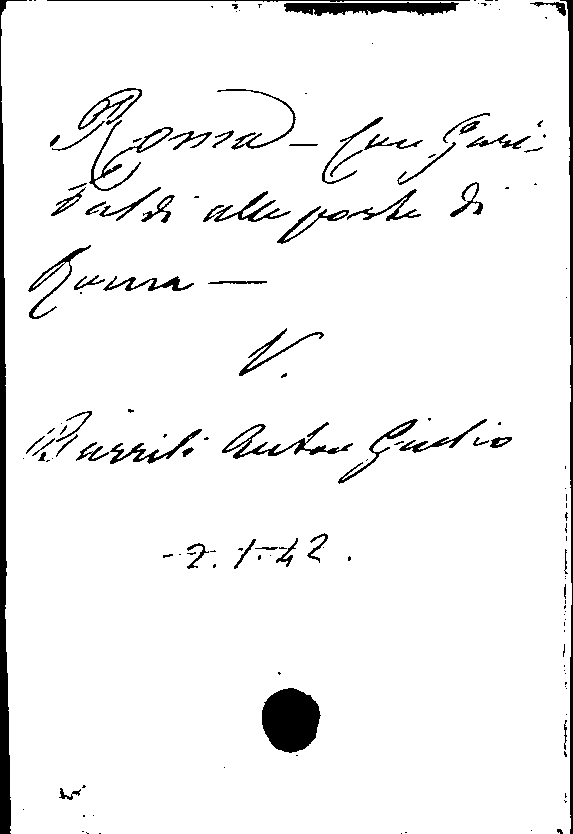 Roma - Con Gari-
baldi alle porte di
Roma -
V.
Barrili Anton Giulio
-2.1.42.